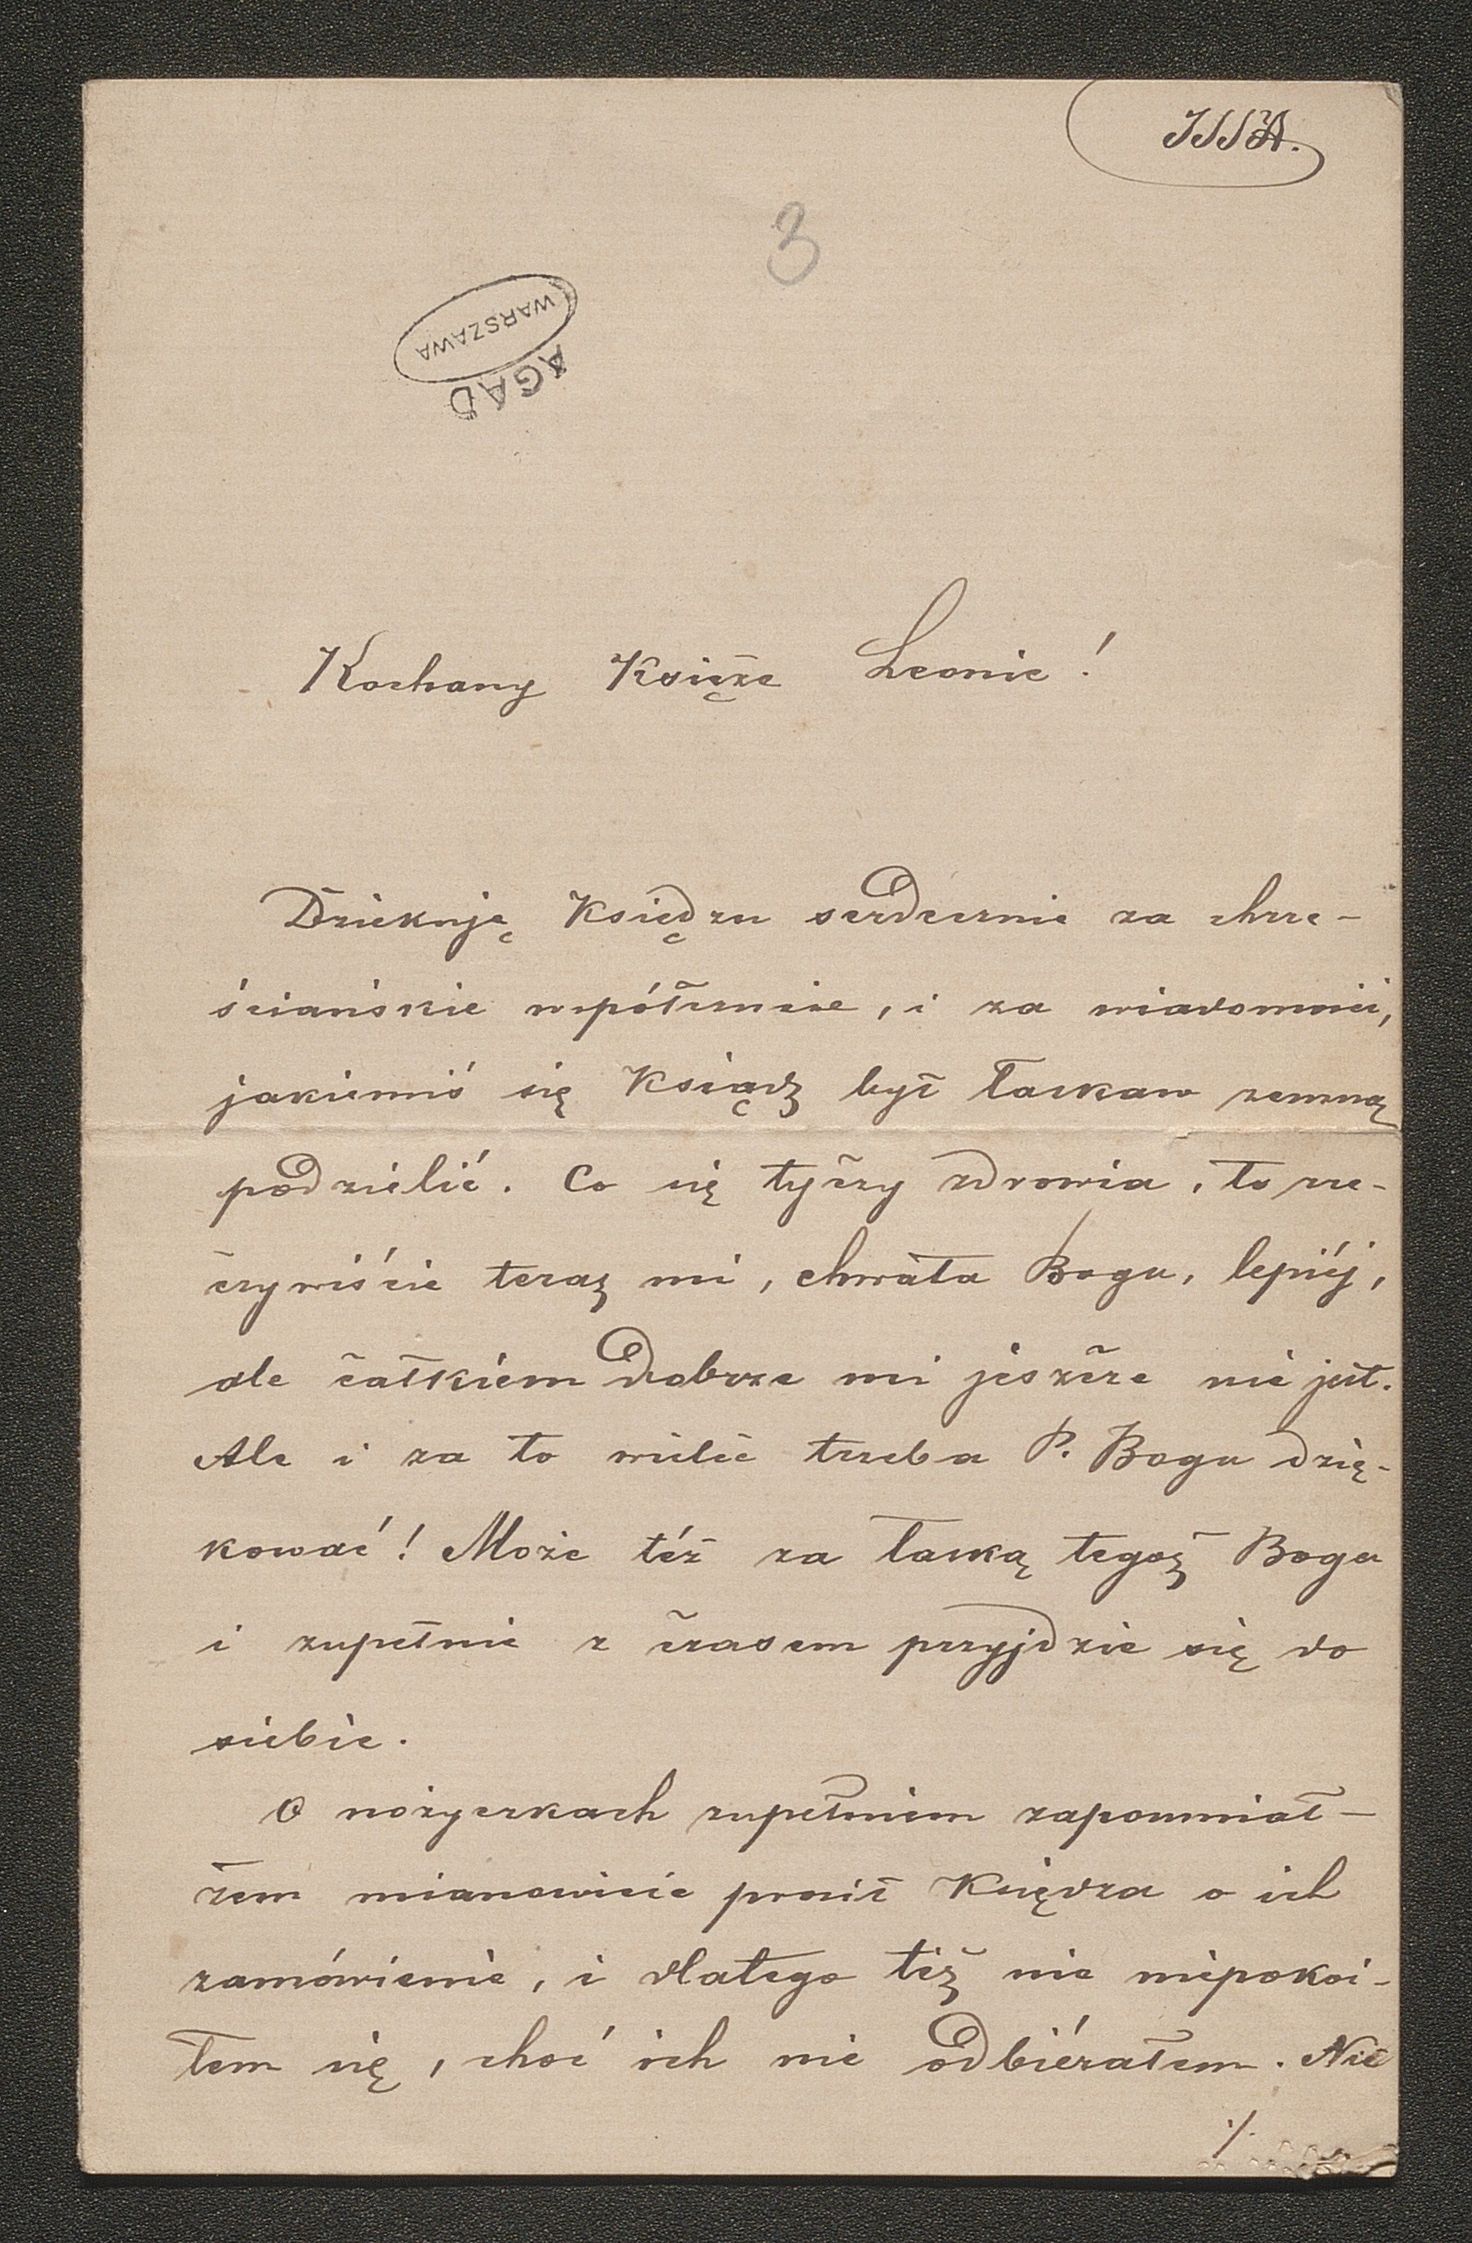 JSSA.
3
WARSZAWA
AGAD
Kochany Księże Leonie!
Dziekuję Księdzu serdecznie za chrze-
ściańskie współczucie, i za wiadomości,
jakiemiś się Ksiądz był łaskaw zemną
podzielić. Co się tyczy zdrowia, to rze-
czywiście teraz mi, chwała Bogu, lepiéj,
ale całkiem dobrze mi jeszcze nie jest.
Ale i za to wielce trzeba P. Bogu dzię-
kować! Może téż za łaską tegoż Boga
i zupełnie z czasem przyjdzie się do
siebie.
O nożyczkach zupełniem zapomniał —
żem mianowicie prosił Księdza o ich
zamówienie, i dlatego też nie niepokoi-
łem się, choć ich nie odbiérałem. Nie
./.